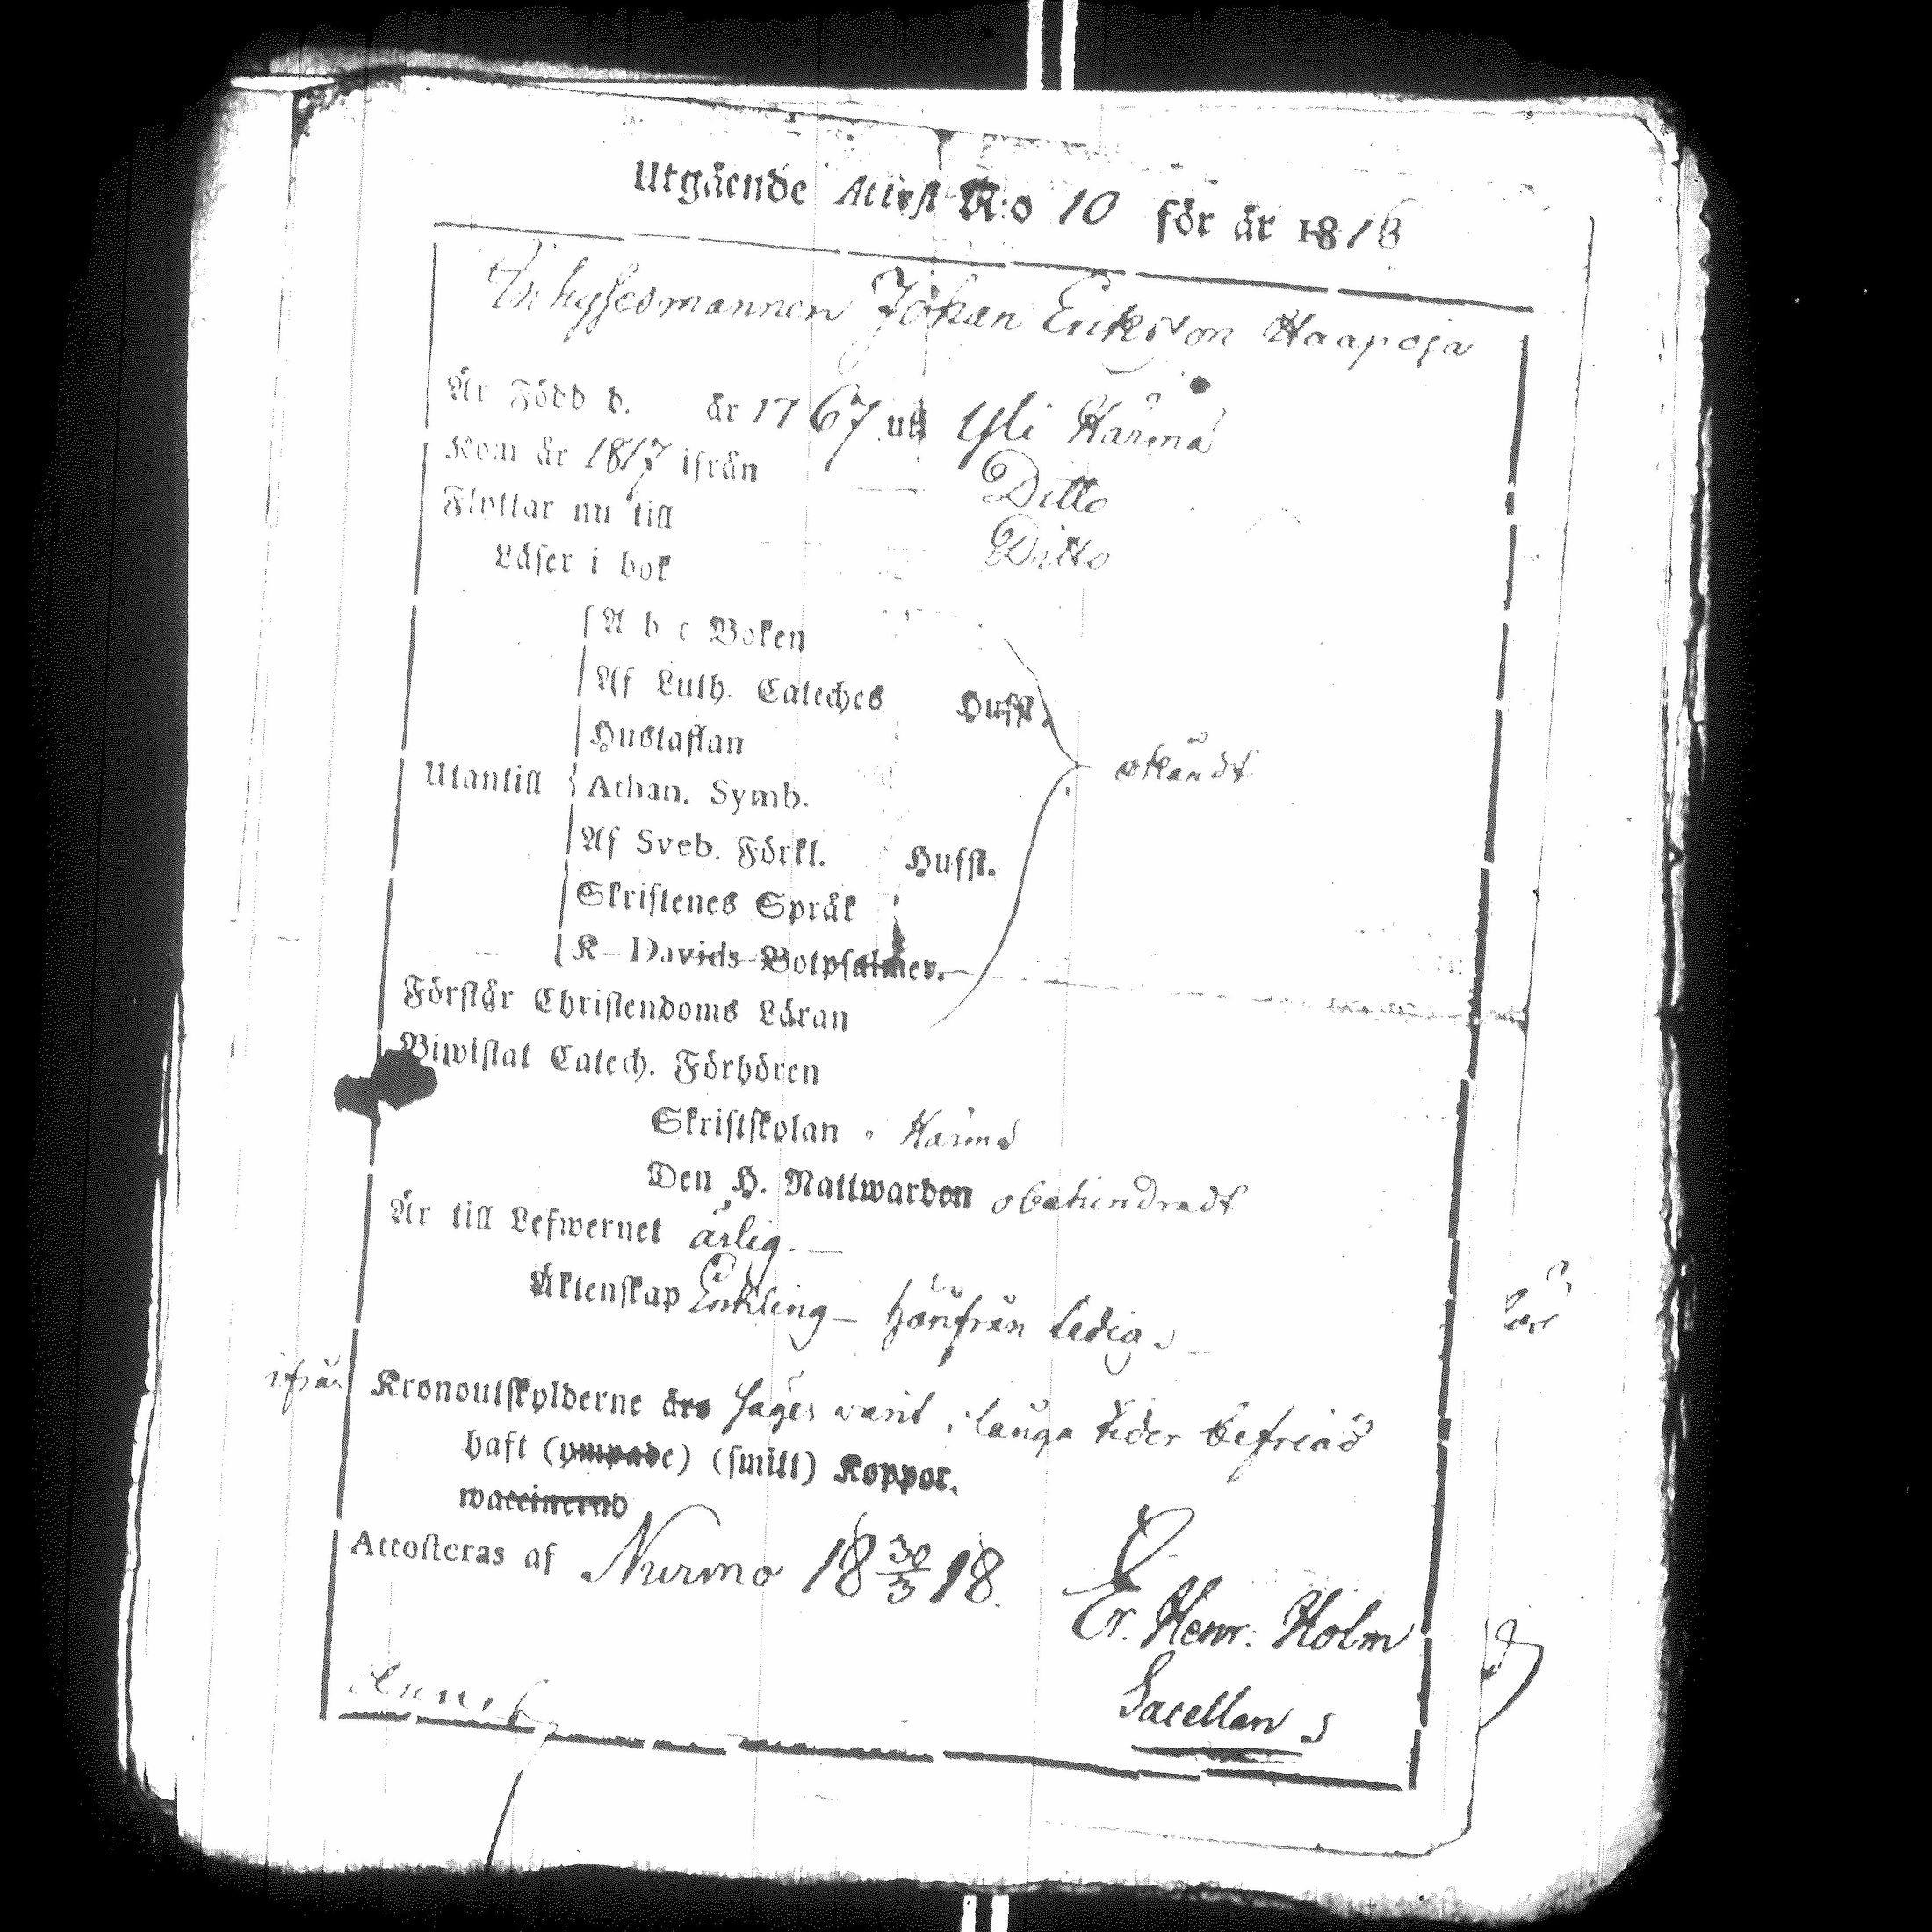 Utgående Attest N:o 10 för år 1818
Inhysesmannen Johan Eriksson Haapoja
Är Född d. år 1767 uti Yli Härmä
Kom år 1817 ifrån Ditto
Flyttar nu till Ditto
Läser i bok
A b c Boken
Af Luth. Cateches Hufst.
Hustaflan
Utantill Athan. Symb. okändt
Af Sveb. Förkl. Hufst.
Skriftenes Språk
K. Davids Botpsalmer.
Förstår Christendoms Läran
Biwistat Catech. Förhören
Skriftskolan i Härmä
Den H. Nattwarden obehindradt
Är till Lefwernet ärlig.
Äktenskap Enkling – härifrån ledig
ifrån Kronoutskylderne äro säges varit i långa tider befriad
haft (ympade) (smitt) Koppor.
waccinerad
Attesteras af Nurmo 18 30/3 18.
Er. Henr. Holm
Sacellan